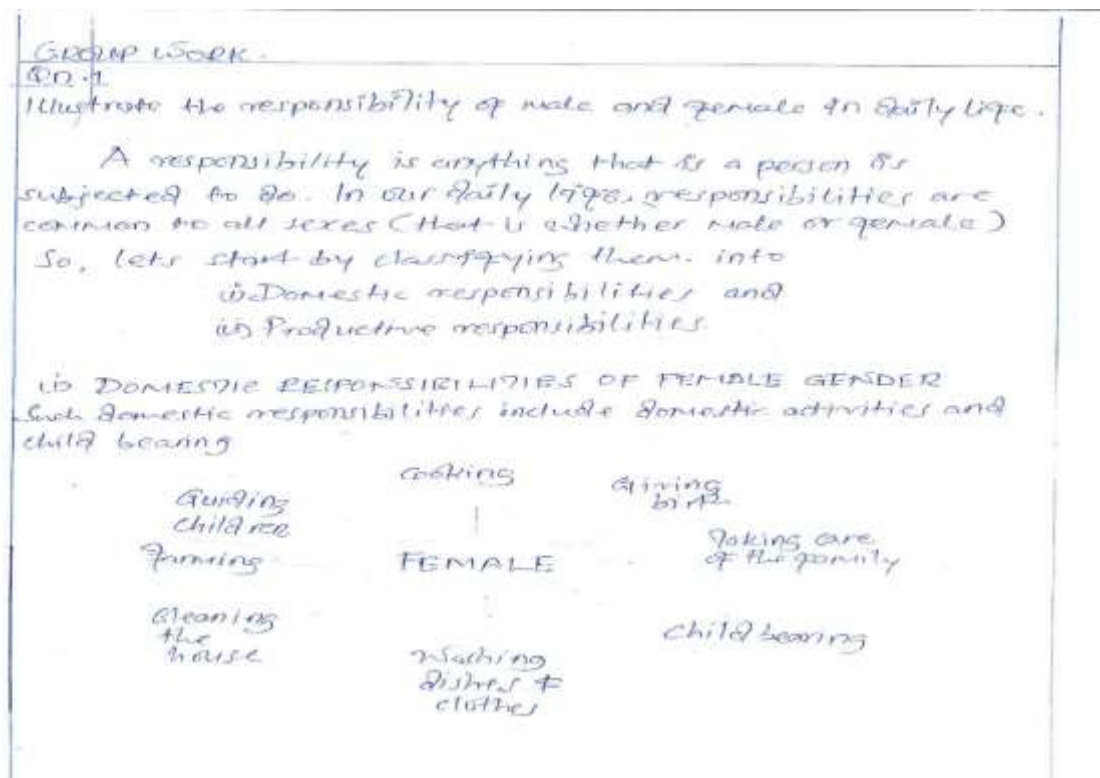 GROUP WORK.
Qn.1
Illustrate the responsibility of male and female in daily life.
A responsibility is anything that is a person is
subjected to do. In our daily life, responsibilities are
common to all sexes (that is whether male or female)
So, lets start by classifying them. into
i) Domestic responsibilities and
ii) Productive responsibilities.
i) DOMESTIC RESPONSSIBILITIES OF FEMALE GENDER
Such domestic responsibilities include domestic activities and
child bearing
Cooking
Giving
birth
Guiding
children
Taking care
of the family
Farming
FEMALE
Cleaning
the
house
Child bearing
Washing
dishes &
clothes